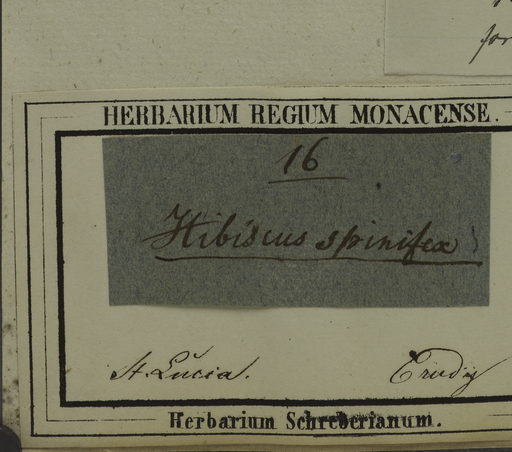 for
HERBARIUM REGIUM MONACENSE.
16
Hibiscus spinifex
St. Lucia.
Herbarium Schreberianum.